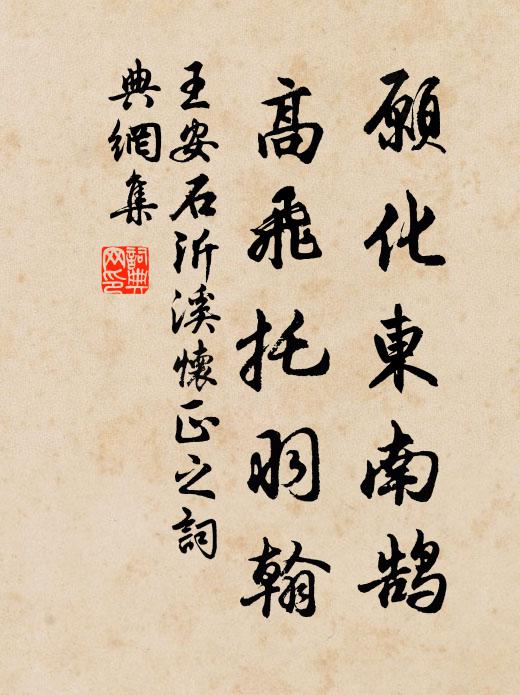 願化東南鵠
高飛托羽翰
王安石沂溪懷正之詞
典網集
詞典
网印